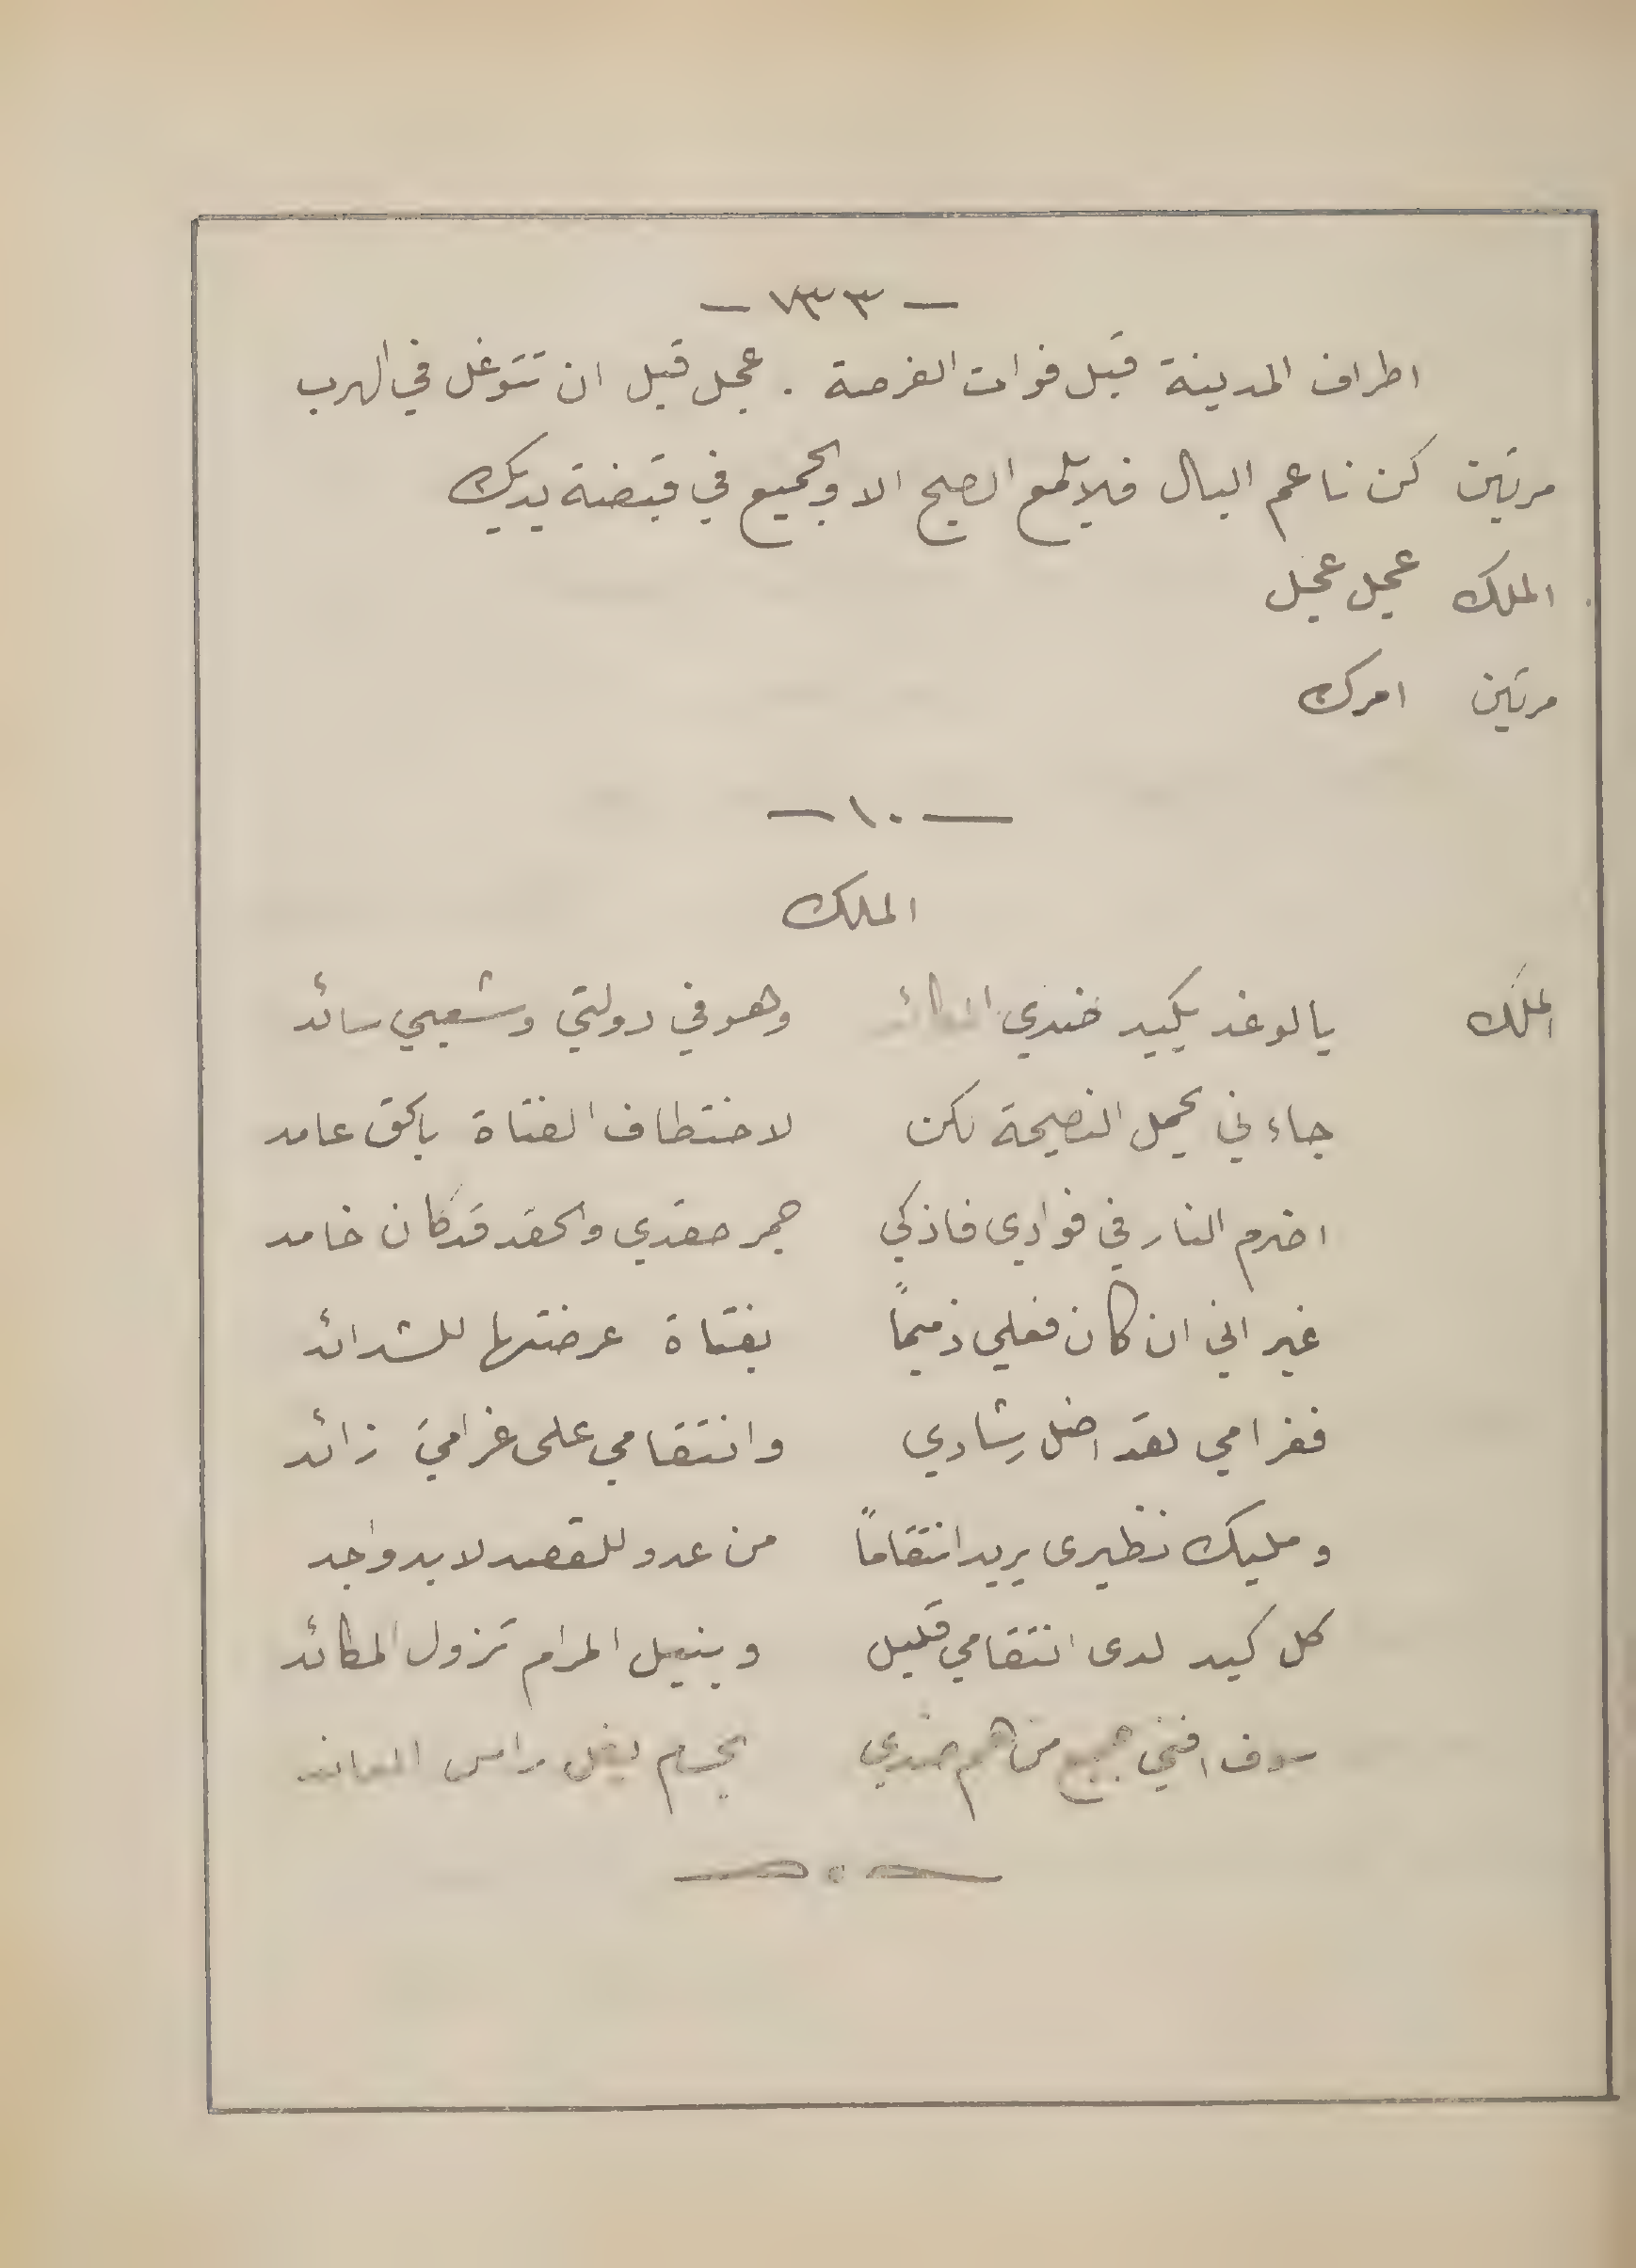 — ١٣٣ —
اطراف المدينة قبل فوات الفرصة . عجل قبل ان تتوغل في الهرب
مرتين كن ناعم البال فلا يلمع الصبح الا والجميع في قبضة يديك
الملك عجل عجل
مرتين امرك
— ١٠ —
الملك
الملك يا لوغد يكيد ضدي وهو في دولتي وشعبي سائد
جاءني يحمل النصيحة لكن لاختطاف الفتاة بالحق عامد
اضرم النار في فوادي فاذكى جمر حقدي والحقد قد كان خامد
غير اني ان كان فعلي ذميماً بفتاة عرضتها للشدائد
فغرامي لقد اضل رشادي وانتقامي على غرامي زائد
ومليك نظيرى يريد انتقاماً من عدو للقصد لا بد واجد
كل كيد لدى انتقامي قليل وبنيل المرام تزول المكائد
سوف افني جميع من هم ضدي بحسام يفل راس المعاند